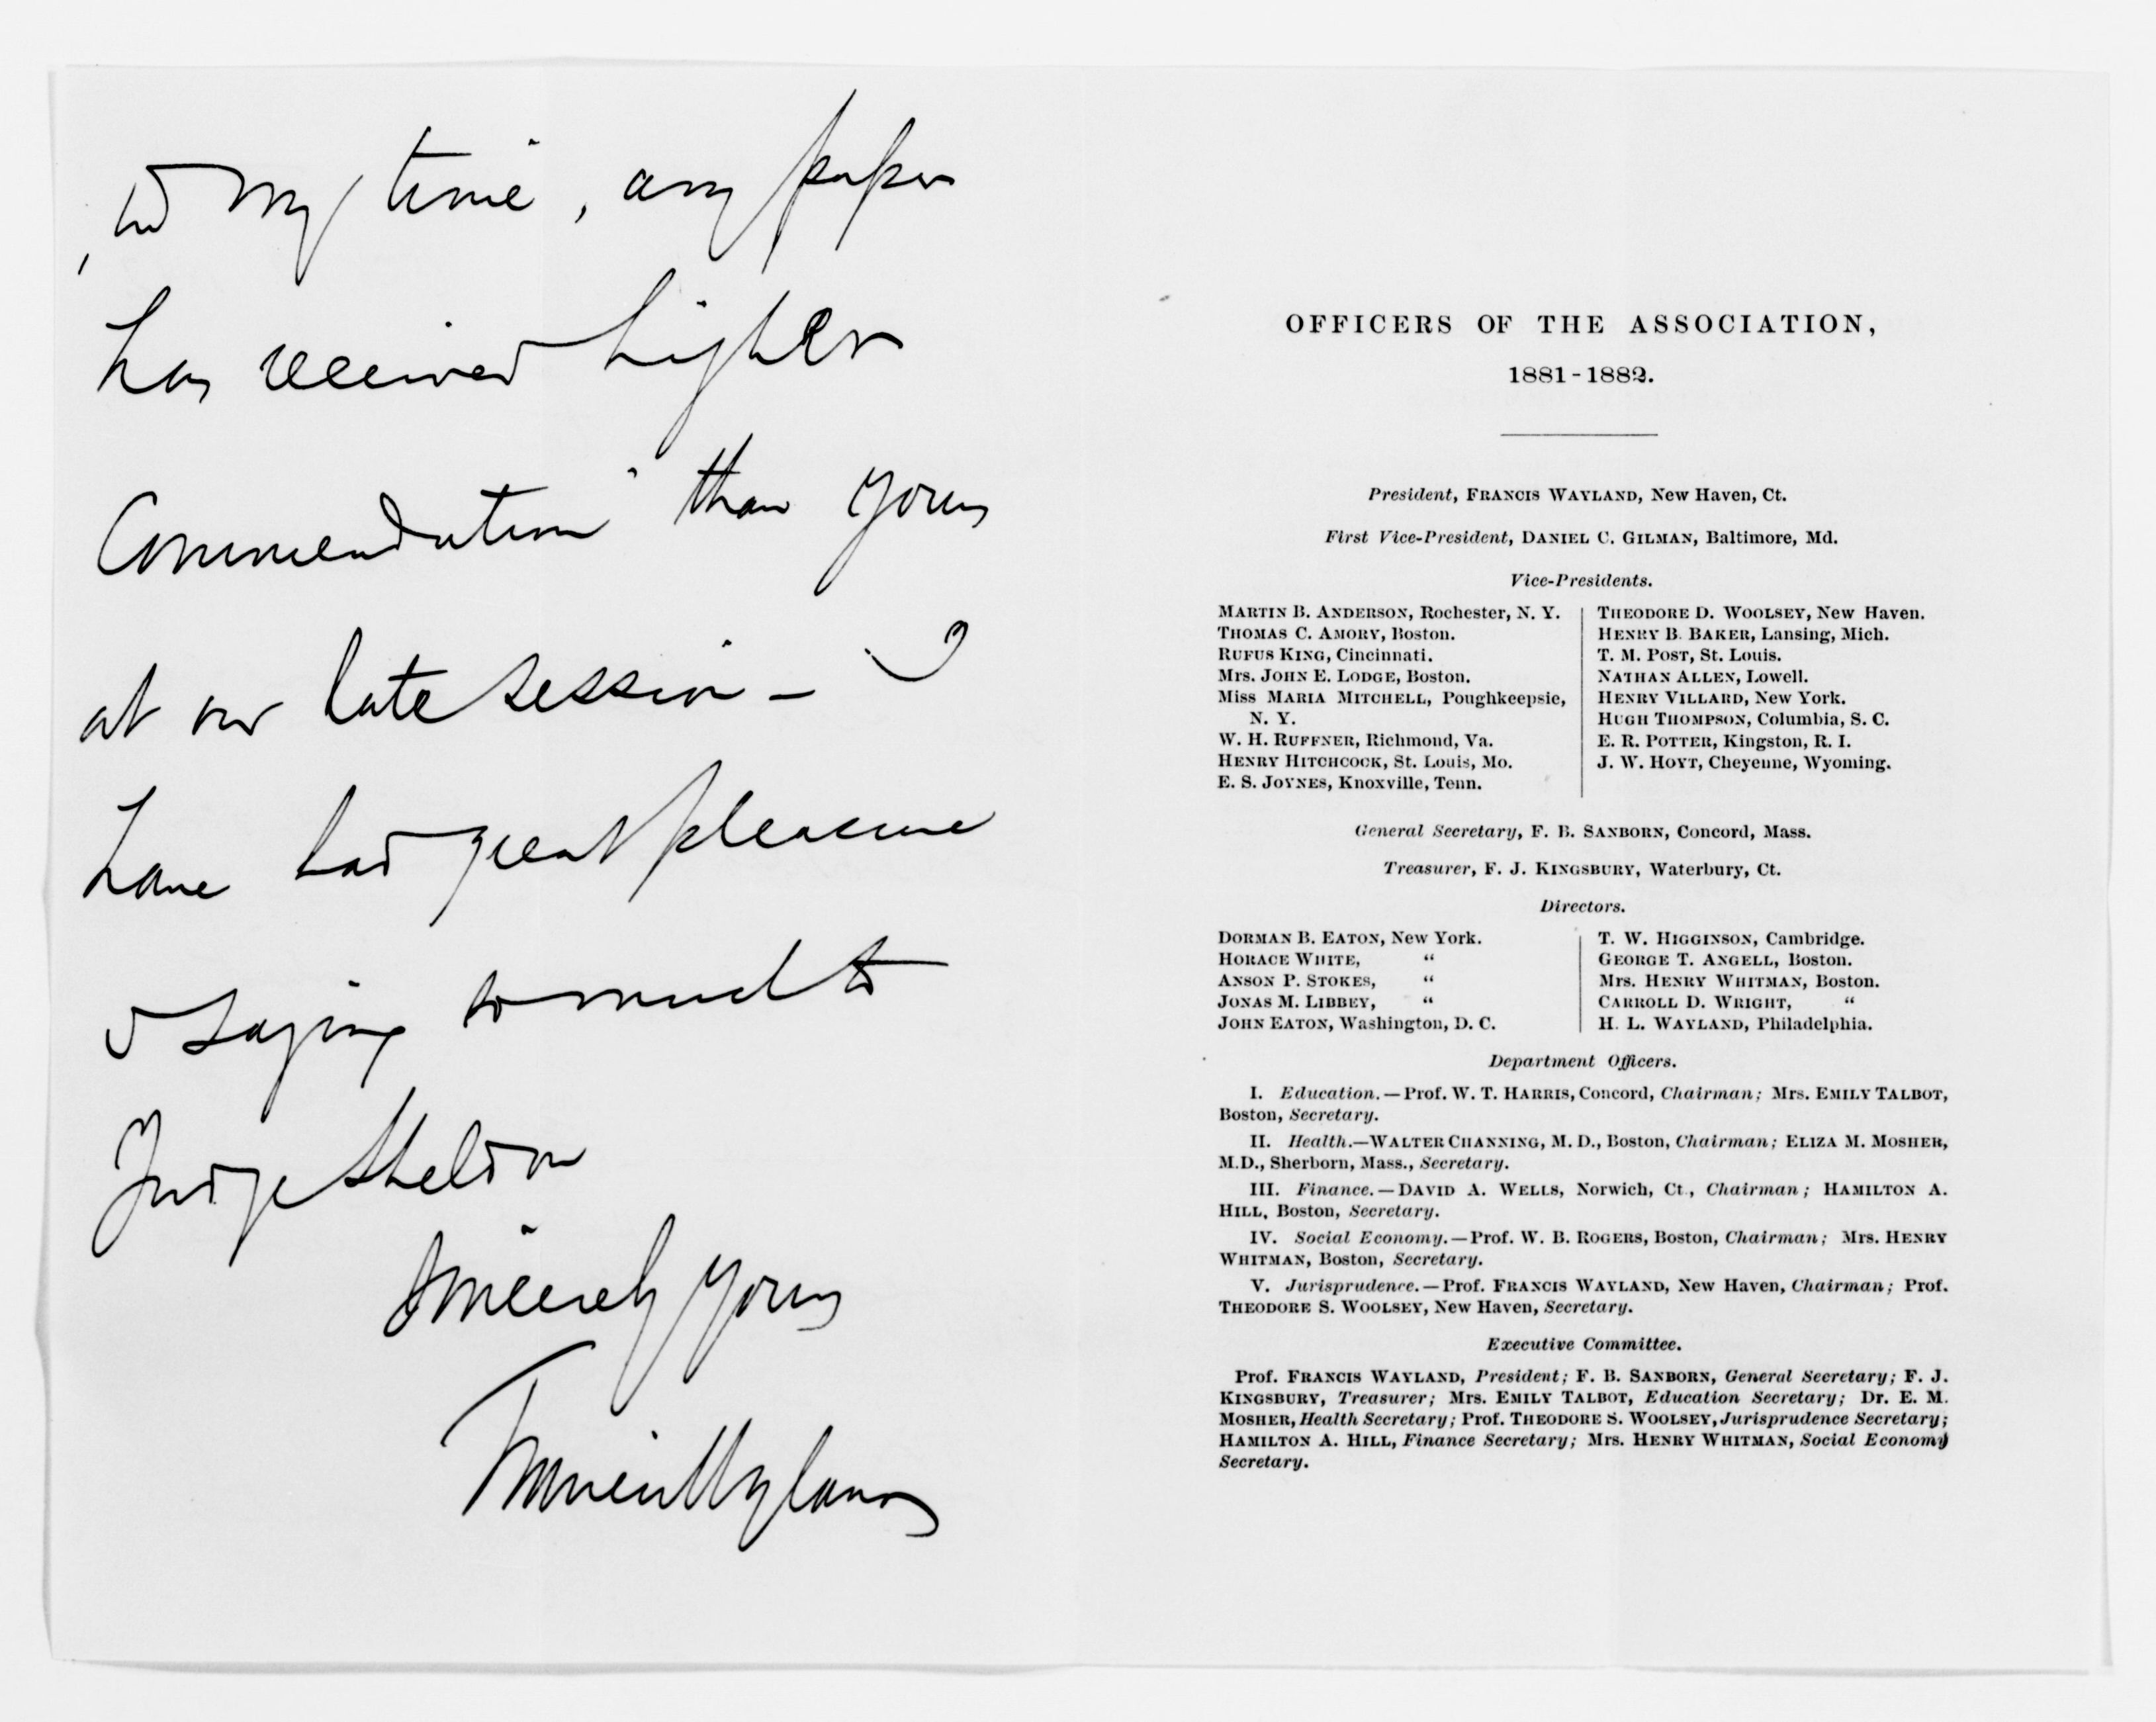 in my time, any paper
has received higher
Commendation than yours
at our late session - I
have had great pleasure
in saying so much to
Judge Sheldon
Sincerely yours
Francis Wayland
OFFICERS OF THE ASSOCIATION,
1881-1882.
President, FRANCIS WAYLAND, New Haven, Ct.
First Vice-President, DANIEL C. GILMAN, Baltimore, Md.
Vice-Presidents.
MARTIN B. ANDERSON, Rochester, N. Y.
THOMAS C. AMORY, Boston.
RUFUS KING, Cincinnati.
Mrs. JOHN E. LODGE, Boston.
Miss MARIA MITCHELL, Poughkeepsie,
N. Y.
W. H. RUFFNER, Richmond, Va.
HENRY HITCHCOCK, St. Louis, Mo.
E. S. JOYNES, Knoxville, Tenn.
THEODORE D. WOOLSEY, New Haven.
HENRY B. BAKER, Lansing, Mich.
T. M. POST, St. Louis.
NATHAN ALLEN, Lowell.
HENRY VILLARD, New York.
HUGH THOMPSON, Columbia, S. C.
E. R. POTTER, Kingston, R. I.
J. W. HOYT, Cheyenne, Wyoming.
General Secretary, F. B. SANBORN, Concord, Mass.
Treasurer, F. J. KINGSBURY, Waterbury, Ct.
Directors.
DORMAN B. EATON, New York.
HORACE WHITE, “
ANSON P. STOKES, “
JONAS M. LIBBEY, “
JOHN EATON, Washington, D. C.
T. W. HIGGINSON, Cambridge.
GEORGE T. ANGELL, Boston.
Mrs. HENRY WHITMAN, Boston.
CARROLL D. WRIGHT, “
H. L. WAYLAND, Philadelphia.
Department Officers.
I. Education.—Prof. W. T. HARRIS, Concord, Chairman; Mrs. EMILY TALBOT,
Boston, Secretary.
II. Health.—WALTER CHANNING, M. D., Boston, Chairman; ELIZA M. MOSHER,
M.D., Sherborn, Mass., Secretary.
III. Finance.—DAVID A. WELLS, Norwich, Ct., Chairman; HAMILTON A.
HILL, Boston, Secretary.
IV. Social Economy.—Prof. W. B. ROGERS, Boston, Chairman; Mrs. HENRY
WHITMAN, Boston, Secretary.
V. Jurisprudence.—Prof. FRANCIS WAYLAND, New Haven, Chairman; Prof.
THEODORE S. WOOLSEY, New Haven, Secretary.
Executive Committee.
Prof. FRANCIS WAYLAND, President; F. B. SANBORN, General Secretary; F. J.
KINGSBURY, Treasurer; Mrs. EMILY TALBOT, Education Secretary; Dr. E. M.
MOSHER, Health Secretary; Prof. THEODORE S. WOOLSEY, Jurisprudence Secretary;
HAMILTON A. HILL, Finance Secretary; Mrs. HENRY WHITMAN, Social Economy
Secretary.